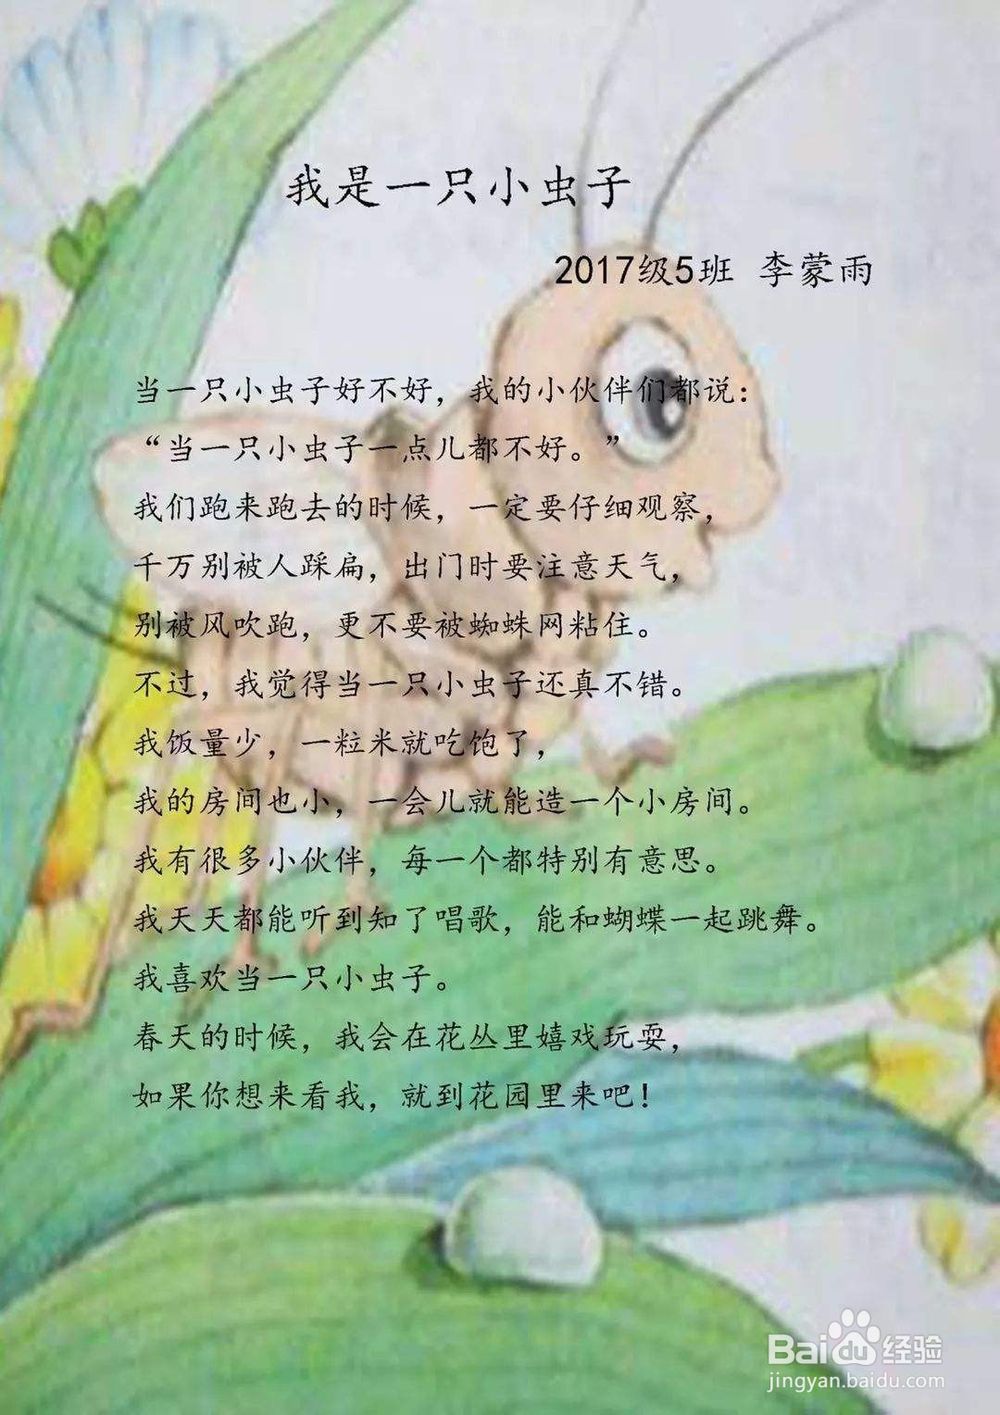 我是一只小虫子
2017级5班 李蒙雨
当一只小虫子好不好，我的小伙伴们都说：
“当一只小虫子一点儿都不好。”
我们跑来跑去的时候，一定要仔细观察，
千万别被人踩扁，出门时要注意天气，
别被风吹跑，更不要被蜘蛛网粘住。
不过，我觉得当一只小虫子还真不错。
我饭量少，一粒米就吃饱了，
我的房间也小，一会儿就能造一个小房间。
我有很多小伙伴，每一个都特别有意思。
我天天都能听到知了唱歌，能和蝴蝶一起跳舞。
我喜欢当一只小虫子。
春天的时候，我会在花丛里嬉戏玩耍，
如果你想来看我，就到花园里来吧！
Baidu 经验
jingyan.baidu.com